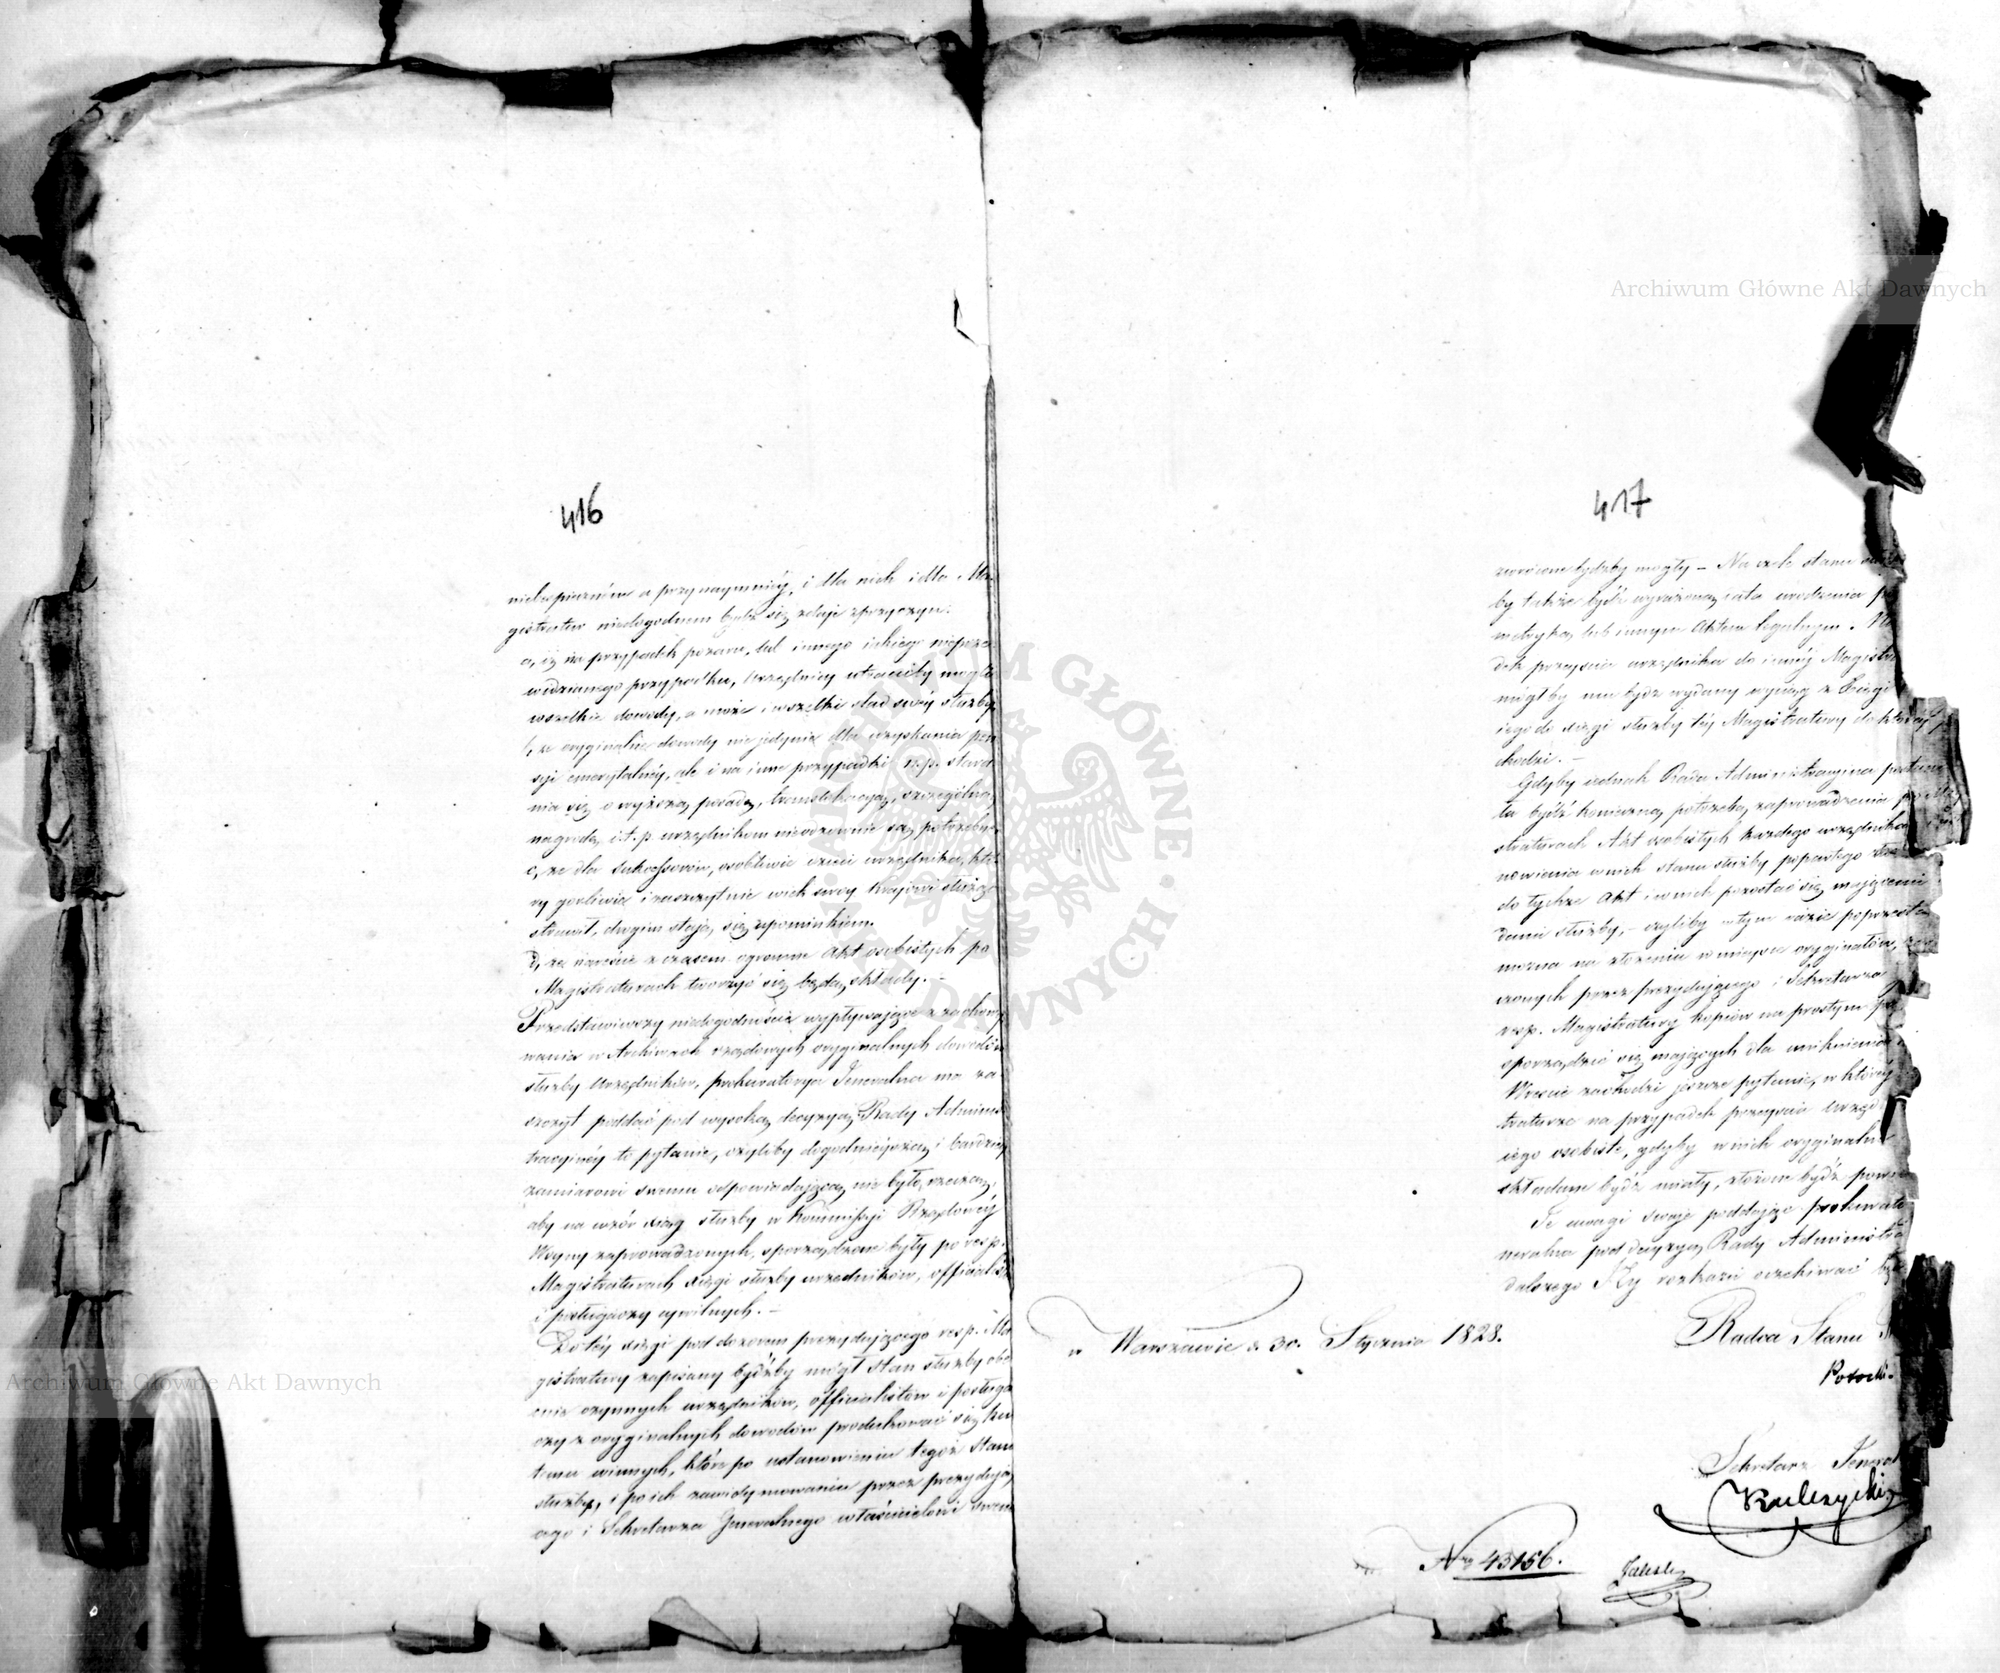 416
niebezpieczném a przynaymniéy, i dla nich i dla Ma-
gistratur niedogodnem bydź się zdaje z przyczyn:
a, iż na przypadek pożaru, lub innego iakiego nieprze-
widzianego przypadku, Urzędnicy utraciliby mogli
wszelkie dowody, a może i wszelki ślad swéy służby,
b, że oryginalne dowody nie jedynie dla uzyskania pen-
syi emerytalnéy, ale i na inne przypadki n.p. stara-
nia się o wyższą posadę, translokacyą, szczególną
nagrodę i.t.p. urzędnikom nieodzownie są potrzebne
c, że dla sukcessorów, osobliwie dzieci urzędnika, któ-
ry gorliwie i zaszczytnie wiek swoy Krajowi służąc
strawił, drogim stają się upominkiem.
d, że nareście z czasem ogromne Akt osobistych po
Magistraturach tworzyć się będą składy. –
Przedstawiwszy niedogodności wypływające z zachowy-
wania w Archiwach rządowych oryginalnych dowodów
służby Urzędników, prokuratorya Jeneralna ma za-
szczyt poddać pod wysoką decyzyą Rady Adminis-
tracyinéy to pytanie, czyliby dogodnieyszą i bardziéy
zamiarowi swemu odpowiadającą nie było rzeczą,
aby na wzór xiąg służby w Kommissyi Rządowéy
Woyny zaprowadzonych, sporządzone były po resp.
Magistraturach xięgi służby urzedników, officialistów
i posługaczy cywilnych. –
Do téy xięgi pod dozorem prezydującego resp. Ma-
gistratury zapisany bydźby mógł stan służby obe-
cnie czynnych urzędników, officialistów i posługa-
czy z oryginalnych dowodów produkować się ku
temu winnych, które po ustanowieniu tegoż stanu
służby, i po ich zawidymowaniu przez prezydują-
cego i Sekretarza Generalnego właścicielowi swemu
417
zwrócone bydźby mogły – Na czele stanu służ
by także bydź wyrażona data urodzenia po
metryką lub innym Aktem legalnym. Na
dek przejścia urzędnika do innéy Magistra
mógłby mu bydź wydany wyciąg z Księgi
iego do xięgi służby téy Magistratury do któréy p
chodzi. –
Gdyby jednak Rada Administracyina postano
ła bydź konieczną potrzebą zaprowadzenia po Ma
straturach Akt osobistych każdego urzędnika
nowienia w nich stanu służby popartego
do tychże Akt i w nich pozostać się mającemi
dami służby, – czyliby w tym razie poprzestać
można na złożeniu w miejsce oryginałów,
czonych przez prezydującego i Sekretarza
resp. Magistratury kopiów na prostym pap
sporządzić się mających dla uniknienia
Wreście zachodzi jeszcze pytanie, w któréy
traturze na przypadek przejścia Urzęd
iego osobiste, gdyby w nich oryginalne
składane bydź miały, złożone bydź powin
Te uwagi swoje poddając prokurato
neralna pod decyzyą Rady Administra
dalszego Jéy rozkazu oczekiwać będ
w Warszawie d. 30. Stycznia 1828.
Radca Stanu
Potocki
Sekretarz Jeneral
Kulczycki
Nro 43156.